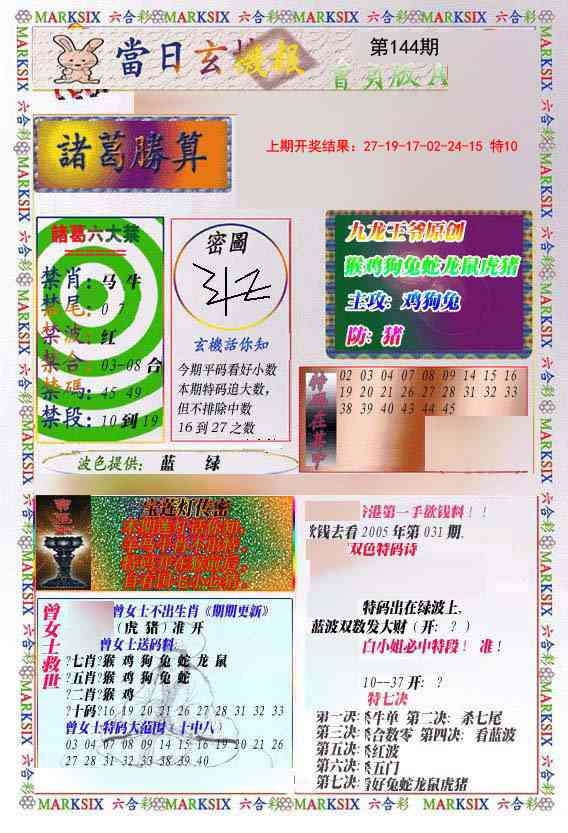 MARKSIX 六合彩 MARKSIX 六合彩 MARKSIX 六合彩 MARKSIX 六合彩 MARKSIX
當日玄機報
第144期
諸葛勝算
上期开奖结果：27-19-17-02-24-15 特10
諸葛六大禁
禁肖：马 牛
禁尾：0 7
禁波：红
禁合：03-08 合
禁碼：45 49
禁段：10 到 19
密圖
玄機活你知
今期平码看好小数
本期特码追大数，
但不排除中数
16 到 27 之数
九龙王爷原创
猴鸡狗兔蛇龙鼠虎猪
主攻：鸡狗兔
防：猪
特码在其中
02 03 04 07 08 09 14 15 16
19 20 21 26 27 28 31 32 33
38 39 40 43 44 45
波色提供： 蓝 绿
宝莲灯传密
香港第一手欲钱料！！
欲钱去看 2005 年第 031 期.
双色特码诗
特码出在绿波上,
蓝波双数发大财（开：？）
白小姐必中特段！ 准！
10--37 开：？
特七决
第一决:杀牛单 第二决：杀七尾
第三决:杀合数零 第四决：看蓝波
第五决:杀红波
第六决:杀五门
第七决:看好兔蛇龙鼠虎猪
曾女士救世
曾女士不出生肖《期期更新》
（虎 猪）准 开
曾女士送码料:
?七肖?猴 鸡 狗 兔 蛇 龙 鼠
?五肖?猴 鸡 狗 兔 蛇
?二肖?猴 鸡
?十码?16 19 20 21 26 27 28 31 32 33
曾女士特码大范围（十中八）
03 04 07 08 09 14 15 16 19 20 21 26
27 28 31 32 33 38 39 40
MARKSIX 六合彩 MARKSIX 六合彩 MARKSIX 六合彩 MARKSIX 六合彩 MARKSIX